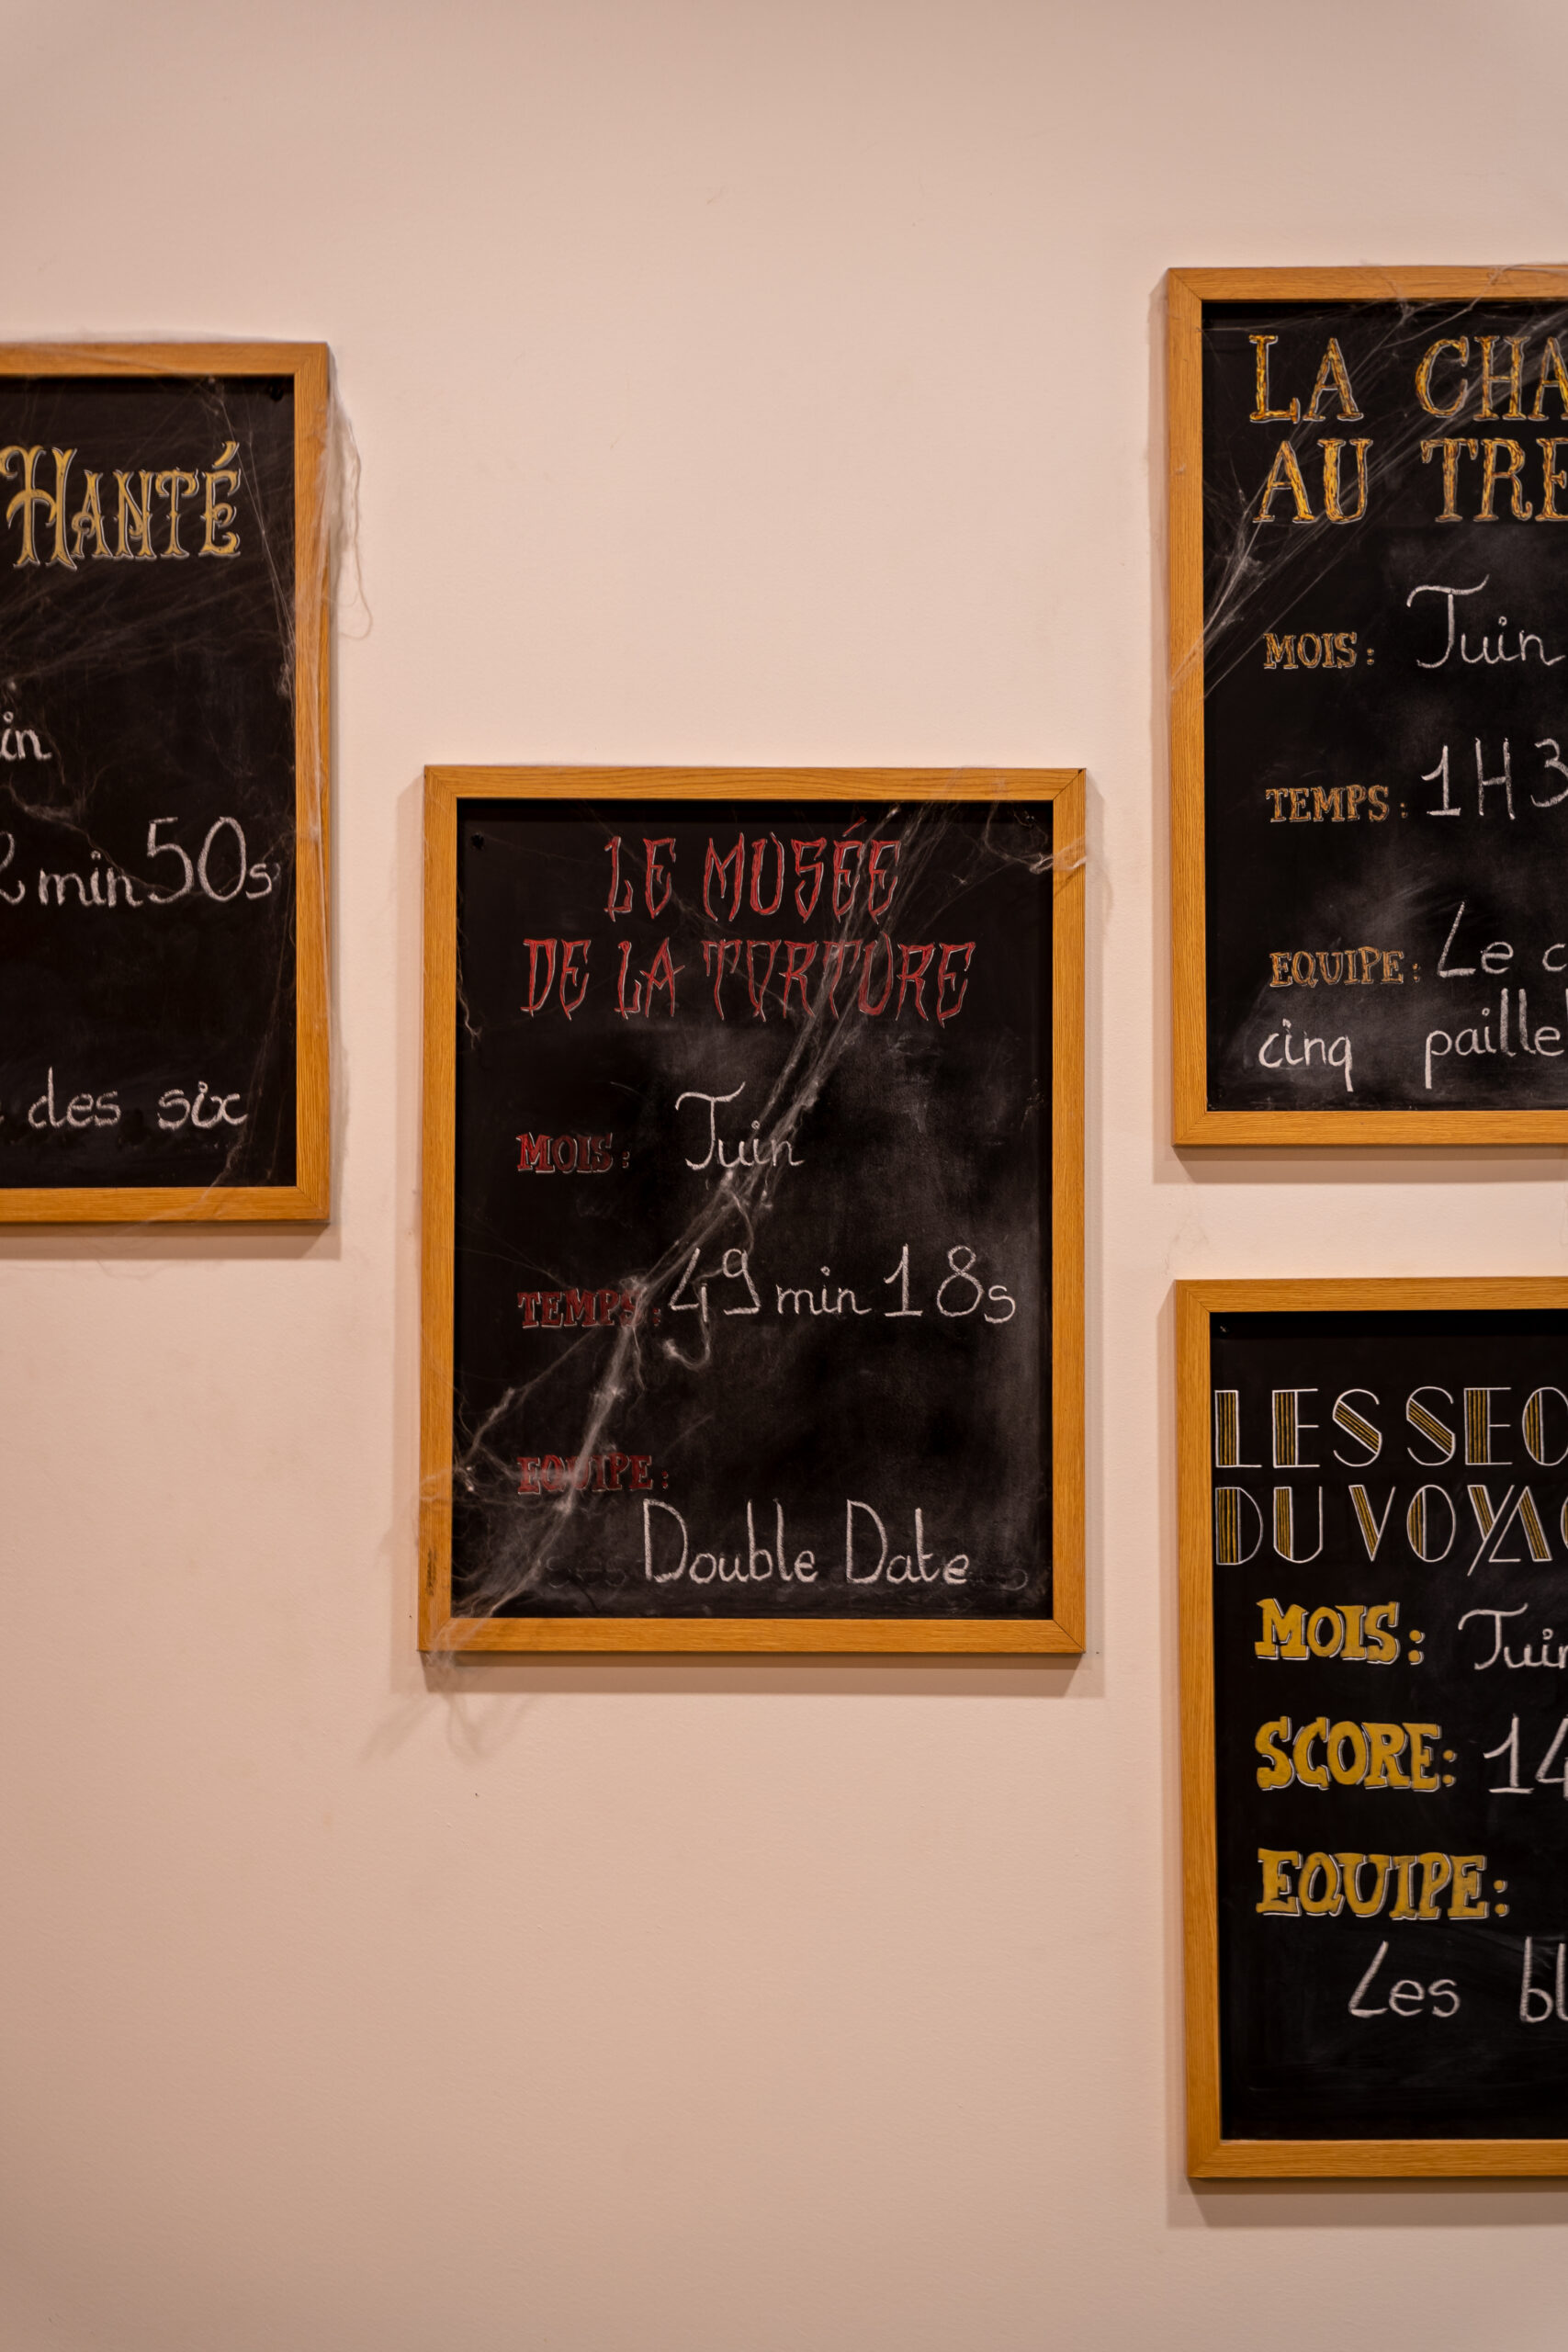 HANTÉ
min 50s
des six
LE MUSÉE
DE LA TORTURE
MOIS: Juin
TEMPS: 49 min 18s
EQUIPE:
Double Date
LA
AU
MOIS: Juin
TEMPS: 1H3
EQUIPE: Le
cinq
LES
DU
MOIS: Juin
SCORE: 14
EQUIPE:
Les